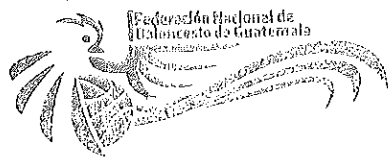 Federación Nacional de
Baloncesto de Guatemala